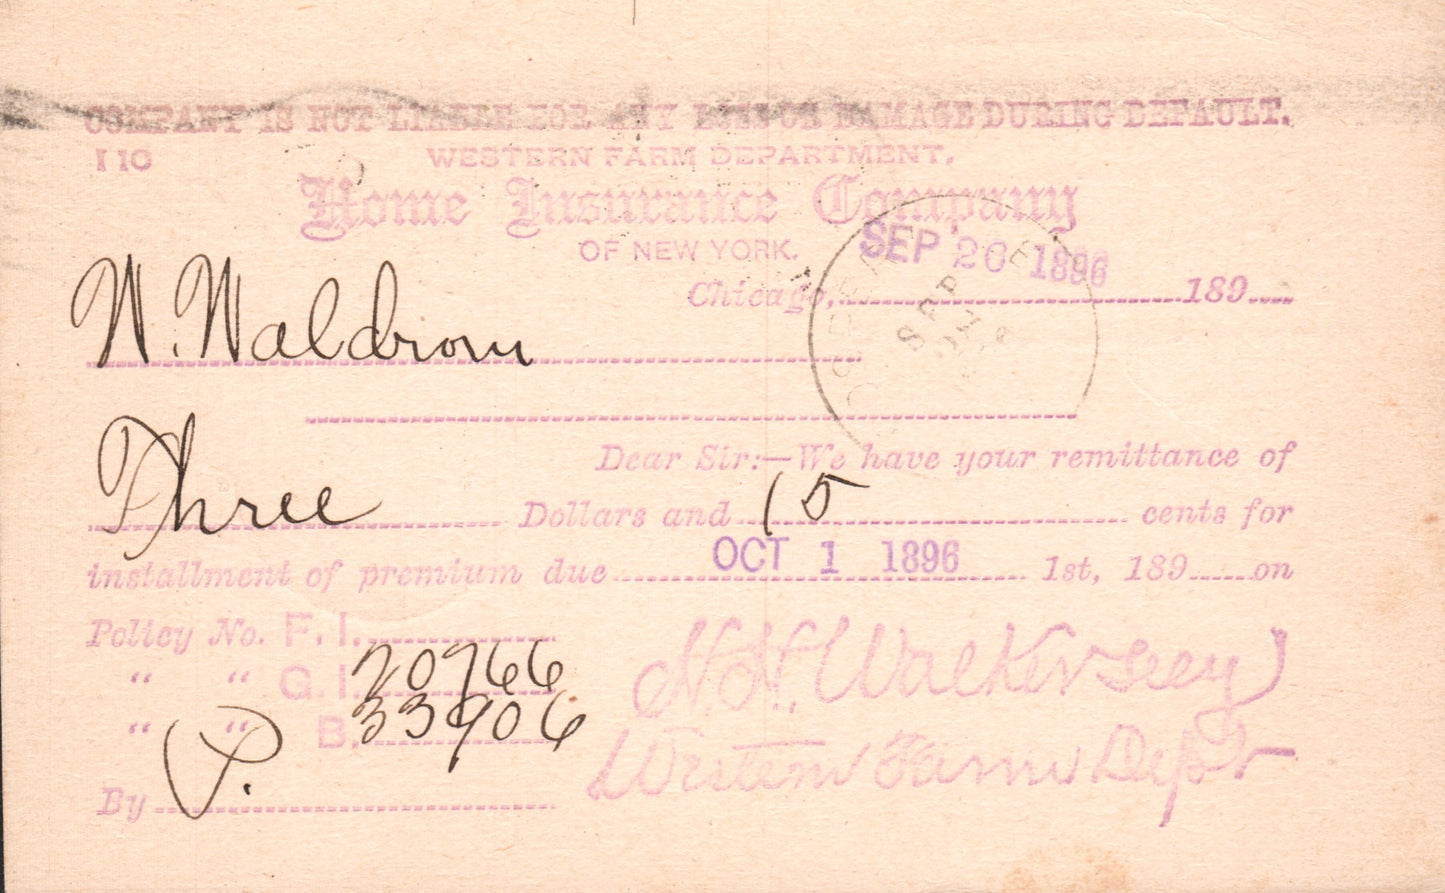 COMPANY IS NOT LIABLE FOR ANY LOSS OR DAMAGE DURING DEFAULT.
I 10 WESTERN FARM DEPARTMENT.
Home Insurance Company
OF NEW YORK.
SEP 26 1896
Chicago, 189
W. Waldrom
Dear Sir:—We have your remittance of
Three Dollars and 15 cents for
installment of premium due OCT 1 1896 1st, 189 on
Policy No. F. I.
" " G. I. 20766
" " B. 33906
By P.
Western Farm Dept
SEP